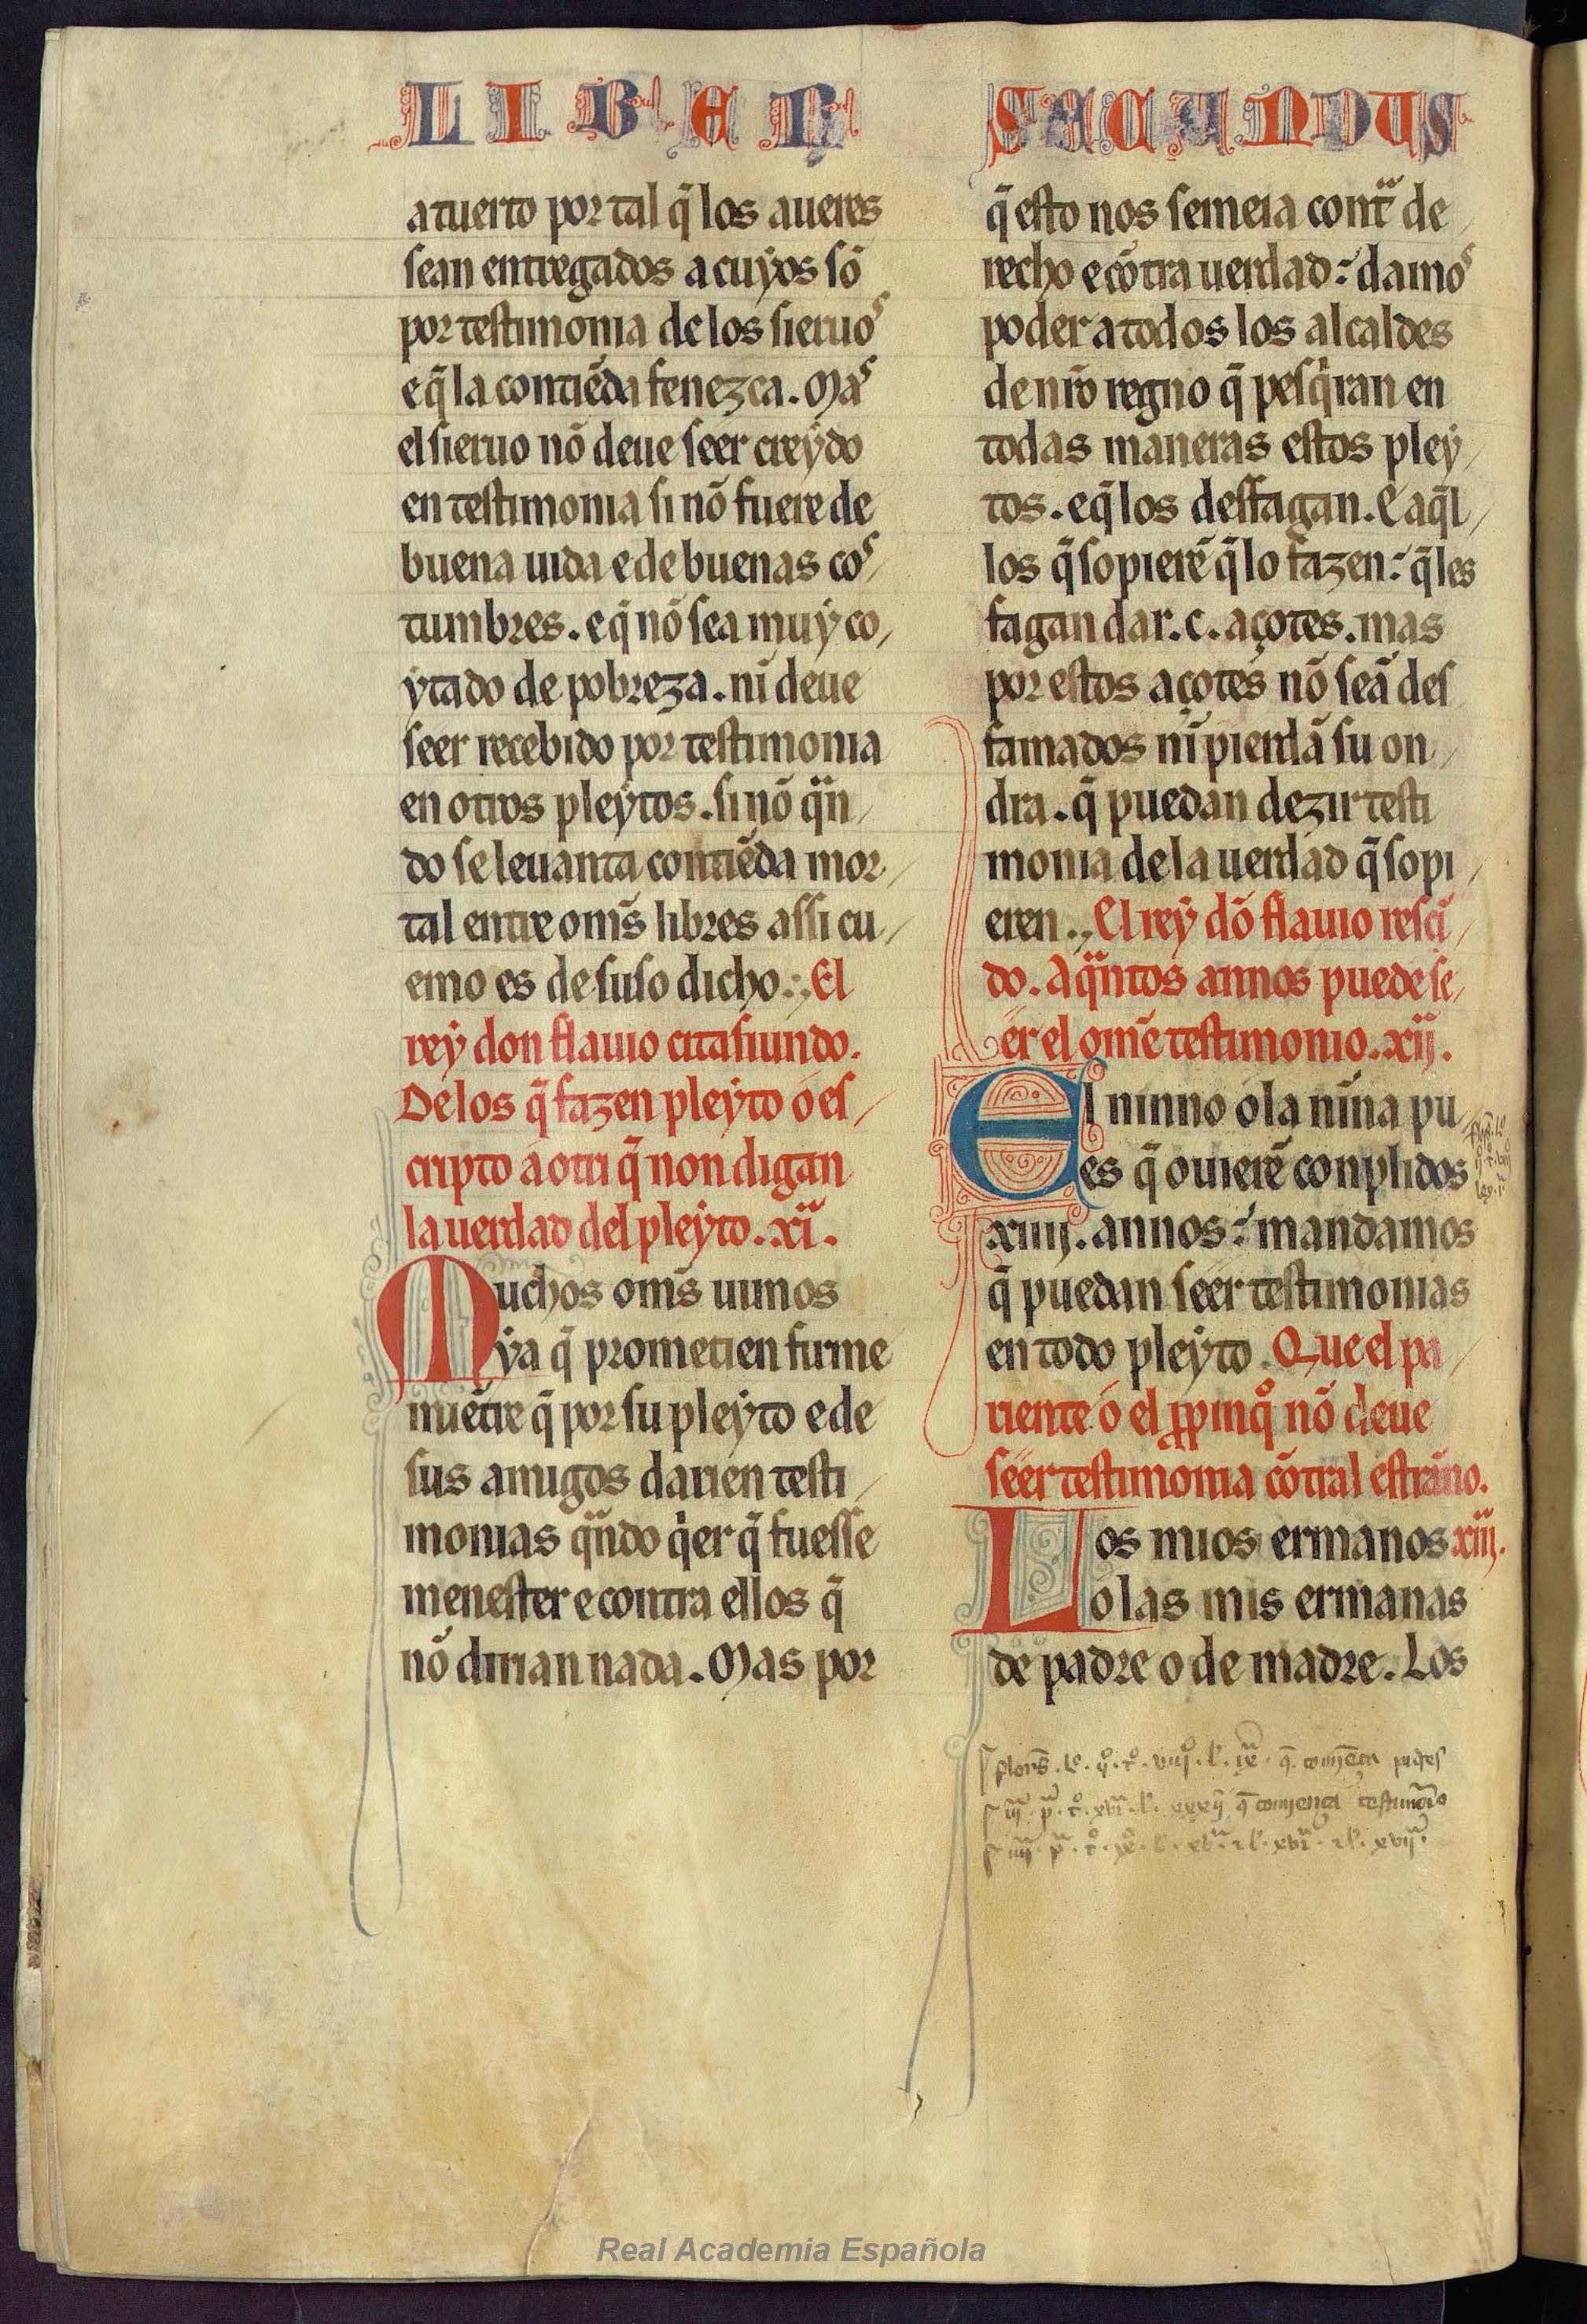 LIBER SECUNDUS
a tuerto por tal q̃ los aueres
sean entregados a cuẏos sõ
por testimonia de los sieruoˢ
e q̃ la contiẽda fenezca. Maˢ
el sieruo nõ deue seer creẏdo
en testimonia si nõ fuere de
buena uida e de buenas coˢ/
tumbres. e q̃ nõ sea muẏ co/
ẏtado de pobreza. nĩ deue
seer recebido por testimonia
en otros pleẏtos. si nõ qᷓn/
do se leuanta contiẽda mor/
tal entre om̃s libres assi cu/
emo es de suso dicho. El
reẏ don flauio citasiundo.
De los q̃ fazen pleẏto o es/
cripto a otri q̃ non digan
la uerdad del pleẏto. .xi.
Muchos om̃s uimos
ẏa q̃ prometien firme
miẽtre q̃ por su pleẏto e de
sus amigos darien testi/
monias qᷓndo qⁱer q̃ fuesse
menester e contra ellos q̃
nõ dirian nada. Mas por
q̃ esto nos semeia contᷓ de/
recho e cõtra uerdad: damoˢ
poder a todos los alcaldes
de nr̃o regno q̃ pesqⁱran en
todas maneras estos pleẏ/
tos. e q̃ los desfagan. E aq̃l/
los q̃ sopierẽ q̃ lo fazen: q̃ les
fagan dar .c. açotes. mas
por estos açotes nõ seã des
famados nĩ pierdã su on/
dra. q̃ puedan dezir testi
monia de la uerdad q̃ sopi/
eren. El reẏ dõ flauio resci/
do. A qᷓntos annos puede se/
er el om̃e testimonio. .xij.
El ninno o la nĩna pu
es q̃ ouierẽ conplidos
xiiij. annos: mandamos
q̃ puedan seer testimonias
en todo pleẏto. Que el pa/
riente o el ꝓpinqº nõ deue
seer testimonia cõtral estrãno.
Los mios ermanos xiij.
o las mis ermanas
de padre o de madre. Los